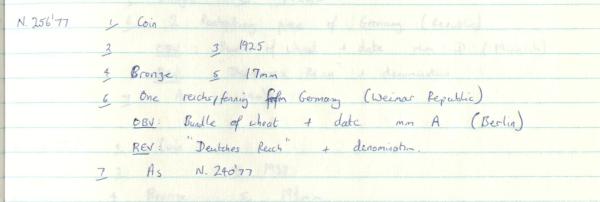 N. 256'77 1 Coin
2 3 1925
4 Bronze 5 17mm
6 One reichspfennig from Germany (Weimar Republic)
OBV: Bundle of wheat + date mm A (Berlin)
REV: "Deutches Reich" + denomination.
7 As N. 240'77